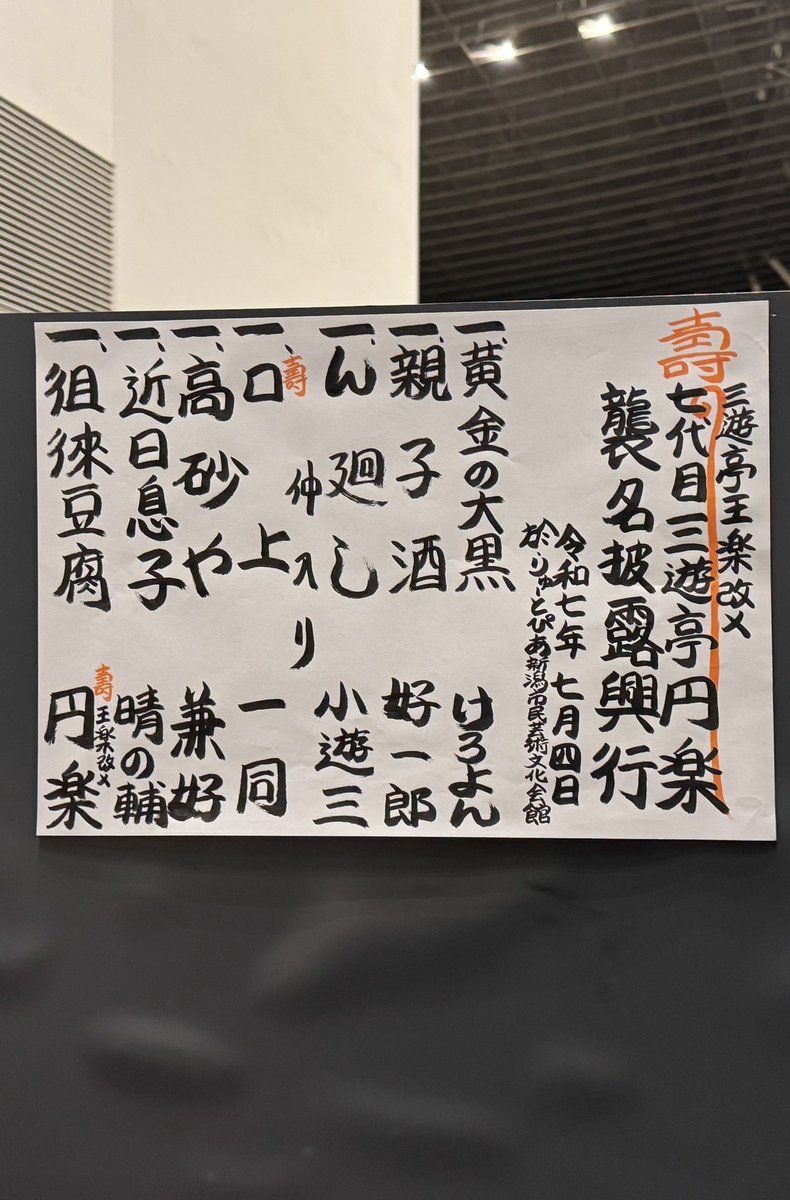 壽
三遊亭王楽改メ
七代目三遊亭円楽
襲名披露興行
令和七年 七月四日
於・りゅーとぴあ新潟市民芸術文化会館
一、黄金の大黒 けろよん
一、親子酒 好一郎
一、ん廻し 小遊三
仲入り
壽
一、口上 一同
一、高砂や 兼好
一、近日息子 晴の輔
壽
王楽改メ
一、徂徠豆腐 円楽